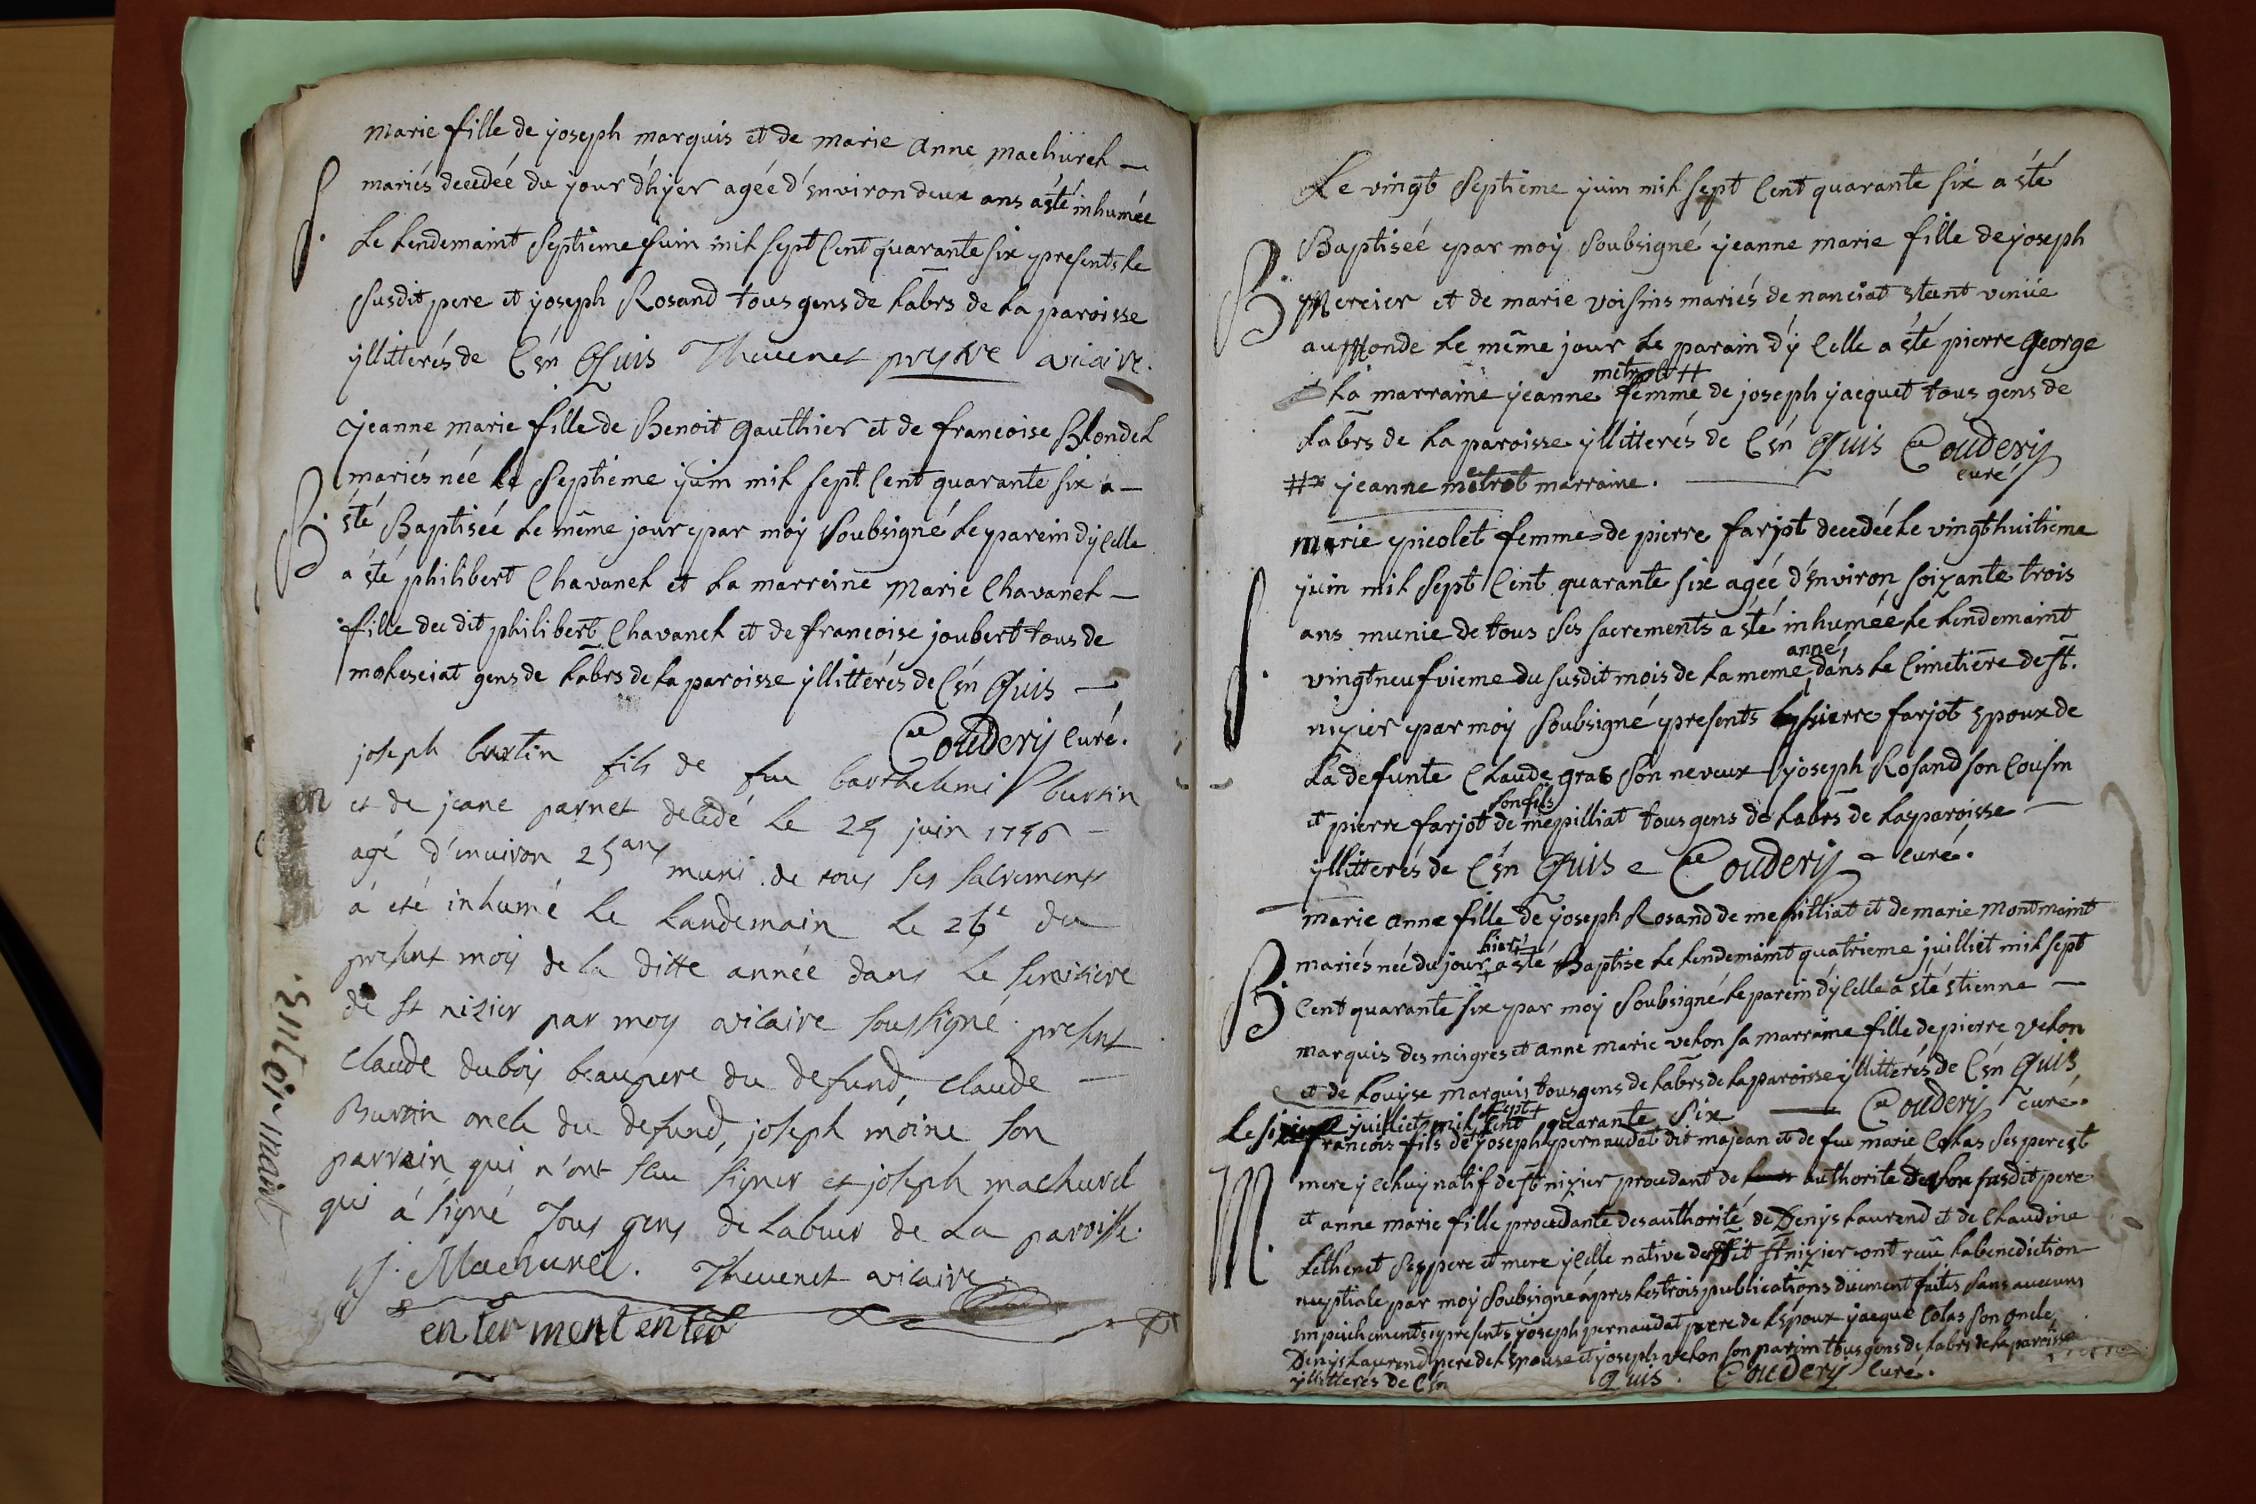 marie fille de joseph marquis et de marie anne machurel —
mariés decedéé du jour d'hÿer agéé d'environ deux ans a'sté inhuméé
S.
le lendemaint septieme juin mil sept cent quarante six presents le
susdit pere et joseph Rosand tous gens de labrs de la paroisse
yllitterés de Csn Quis Thevenet prestre vicaire.
jeanne marie fille de Benoit gauthier et de francoise Blondel
mariés néé le septieme juin mil sept cent quarante six a —
B.
ste Baptiséé le même jour par moÿ soubsigné le parein d'ÿcelle
a ste philibert Chavanel et la marreine marie Chavanel —
fille du dit philibert Chavanel et de francoise joubert tous de
molesciat gens de labrs de la paroisse ÿllittérés de Csn Quis —
Couderÿ curé.
joseph burtin fils de feu barthelemi burtin
en
et de jeane parnet decedé le 25 juin 1746 —
agé d'environ 25 ans muni de tous ses sacrements
á eté inhumé le landemain le 26e du
present moy de la ditte année dans le semitiere
de st nizier par moy vicaire soussigné present
claude duboy beaupere du defund, claude —
Burtin oncle du defund, joseph moine son
parrain qui n'ont sceu signer et joseph machurel
qui á signé Tous gens de labeur de la paroisse.
enter maint
j. Machurel. Thevenet vicaire
enter ment enter
Le vingt septieme juin mil sept cent quarante six a sté
Baptiséé par moÿ soubsigné jeanne marie fille de joseph
B.
Mercier et de marie voisins mariés de nanciat stant venüe
au Monde le même jour le parain d'ÿ celle a sté pierre george
metrobt #
et la marraine jeanne femme de joseph jacquet tous gens de
labrs de la paroisse ÿllitterés de Csn Quis Couderÿ
curé
# jeanne metrot marraine.
marie picolet femme de pierre farjot decedéé le vingt huitieme
juin mil sept cent quarante six agéé d'environ soixante trois
S.
ans munie de tous ses sacrements a sté inhuméé le lendemaint
anné
vingt neufvieme du susdit mois de la meme dans le cimetiere de st.
nizier par moÿ soubsigné presents pierre farjot spoux de
la defunte claude gras son neveux joseph Rosand son cousin
son fils
et pierre farjot de mepilliat tous gens de labrs de la paroisse —
ÿllitterés de Csn Quis Couderÿ curé.
marie anne fille de joseph Rosand de mepilliat et de marie montmaint
hier
mariés néé du jour a sté Baptise le lendemaint quatrieme juilliet mil sept
B.
cent quarante six par moÿ soubsigné le parein d'ÿcelle a sté stienne —
marquis des meigres et anne marie velon sa marraine fille de pierre velon
et de louÿse marquis tous gens de labrs de la paroisse ÿllitterés de Csn Quis
Couderÿ curé.
sept
Le juilliet mil cent quarante six
francois fils de joseph pernaudat dit majean et de feu marie Colas ses pere et
M.
mere ÿceluÿ natif de st nizier procedant de authorité de son susdit pere
et anne marie fille procedante des authorité de Denÿs laurend et de claudine
Lethenet ses pere et mere ÿcelle native dudit st nizier ont recu la benediction
nuptiale par moÿ soubsigné apres les trois publications düement faites sans aucuns
smpeichements presents joseph pernaudat pere de l'époux jacque Colas son oncle
Denÿs laurend pere de l'spouse et joseph velon son parein tous gens de labrs de la paroisse
ÿllitterés de Csn Quis. Couderÿ curé.